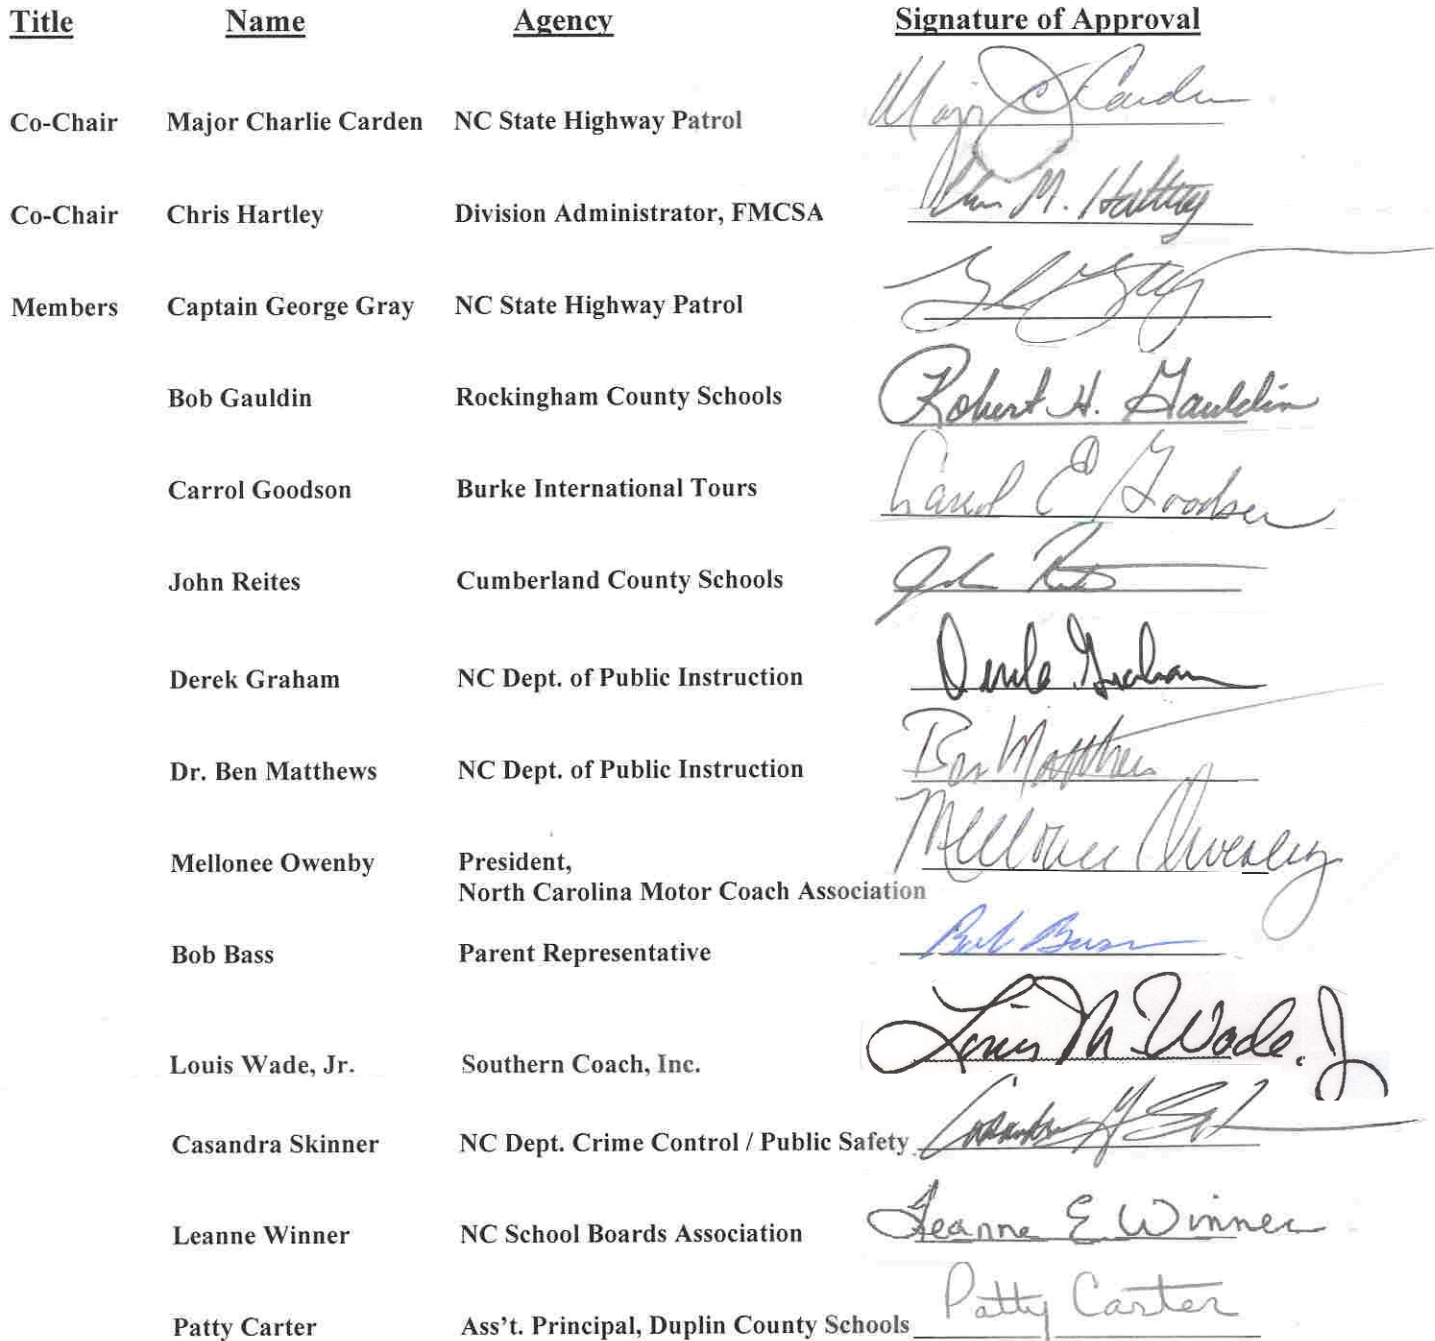 Title Name Agency Signature of Approval
Co-Chair Major Charlie Carden NC State Highway Patrol Major J C Carden
Co-Chair Chris Hartley Division Administrator, FMCSA Chris M. Hartley
Members Captain George Gray NC State Highway Patrol
Bob Gauldin Rockingham County Schools Robert H. Gauldin
Carrol Goodson Burke International Tours Carrol E Goodson
John Reites Cumberland County Schools John
Derek Graham NC Dept. of Public Instruction Derek Graham
Dr. Ben Matthews NC Dept. of Public Instruction Ben Matthews
Mellonee Owenby President, Mellonee Owenby
North Carolina Motor Coach Association
Bob Bass Parent Representative Bob Bass
Louis Wade, Jr. Southern Coach, Inc. Louis M Wade, Jr
Casandra Skinner NC Dept. Crime Control / Public Safety Casandra
Leanne Winner NC School Boards Association Leanne E Winner
Patty Carter Ass't. Principal, Duplin County Schools Patty Carter